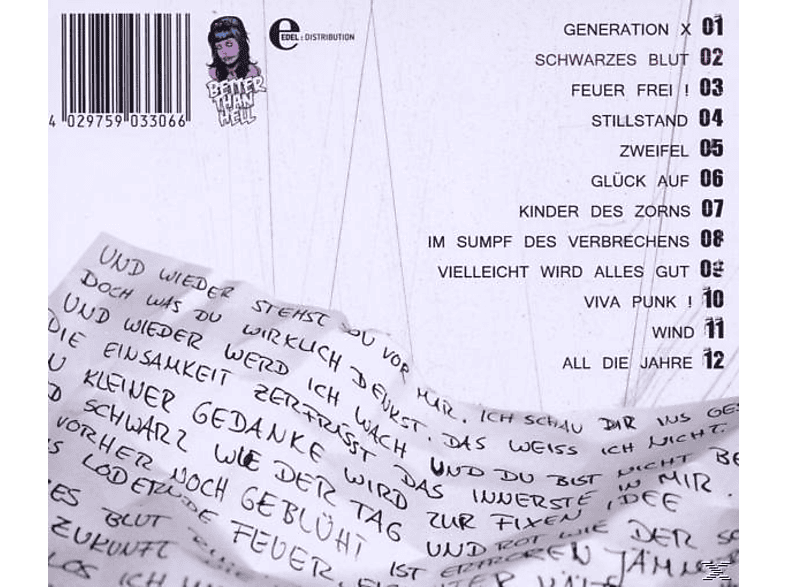 GENERATION X 01
SCHWARZES BLUT 02
FEUER FREI ! 03
STILLSTAND 04
ZWEIFEL 05
GLÜCK AUF 06
KINDER DES ZORNS 07
IM SUMPF DES VERBRECHENS 08
VIELLEICHT WIRD ALLES GUT 09
VIVA PUNK ! 10
WIND 11
ALL DIE JAHRE 12
e EDEL : DISTRIBUTION
BETTER
THAN
HELL
4 029759 033066
UND WIEDER STEHST DU VOR MIR. ICH SCHAU DIR INS GES
DOCH WAS DU WIRKLICH DENKST. DAS WEISS ICH NICHT.
UND WIEDER WERD ICH WACH UND DU BIST NICHT BE
DIE EINSAMKEIT ZERFRISST DAS INNERSTE IN MIR.
U KLEINER GEDANKE WIRD ZUR FIXEN IDEE
D SCHWARZ WIE DER TAG UND ROT WIE DER SC
VORHER NOCH GEBLÜHT IST ERFROREN JÄMMER
S LODERNDE FEUER
ES BLUT
ZUKUNFT
LOS ICH